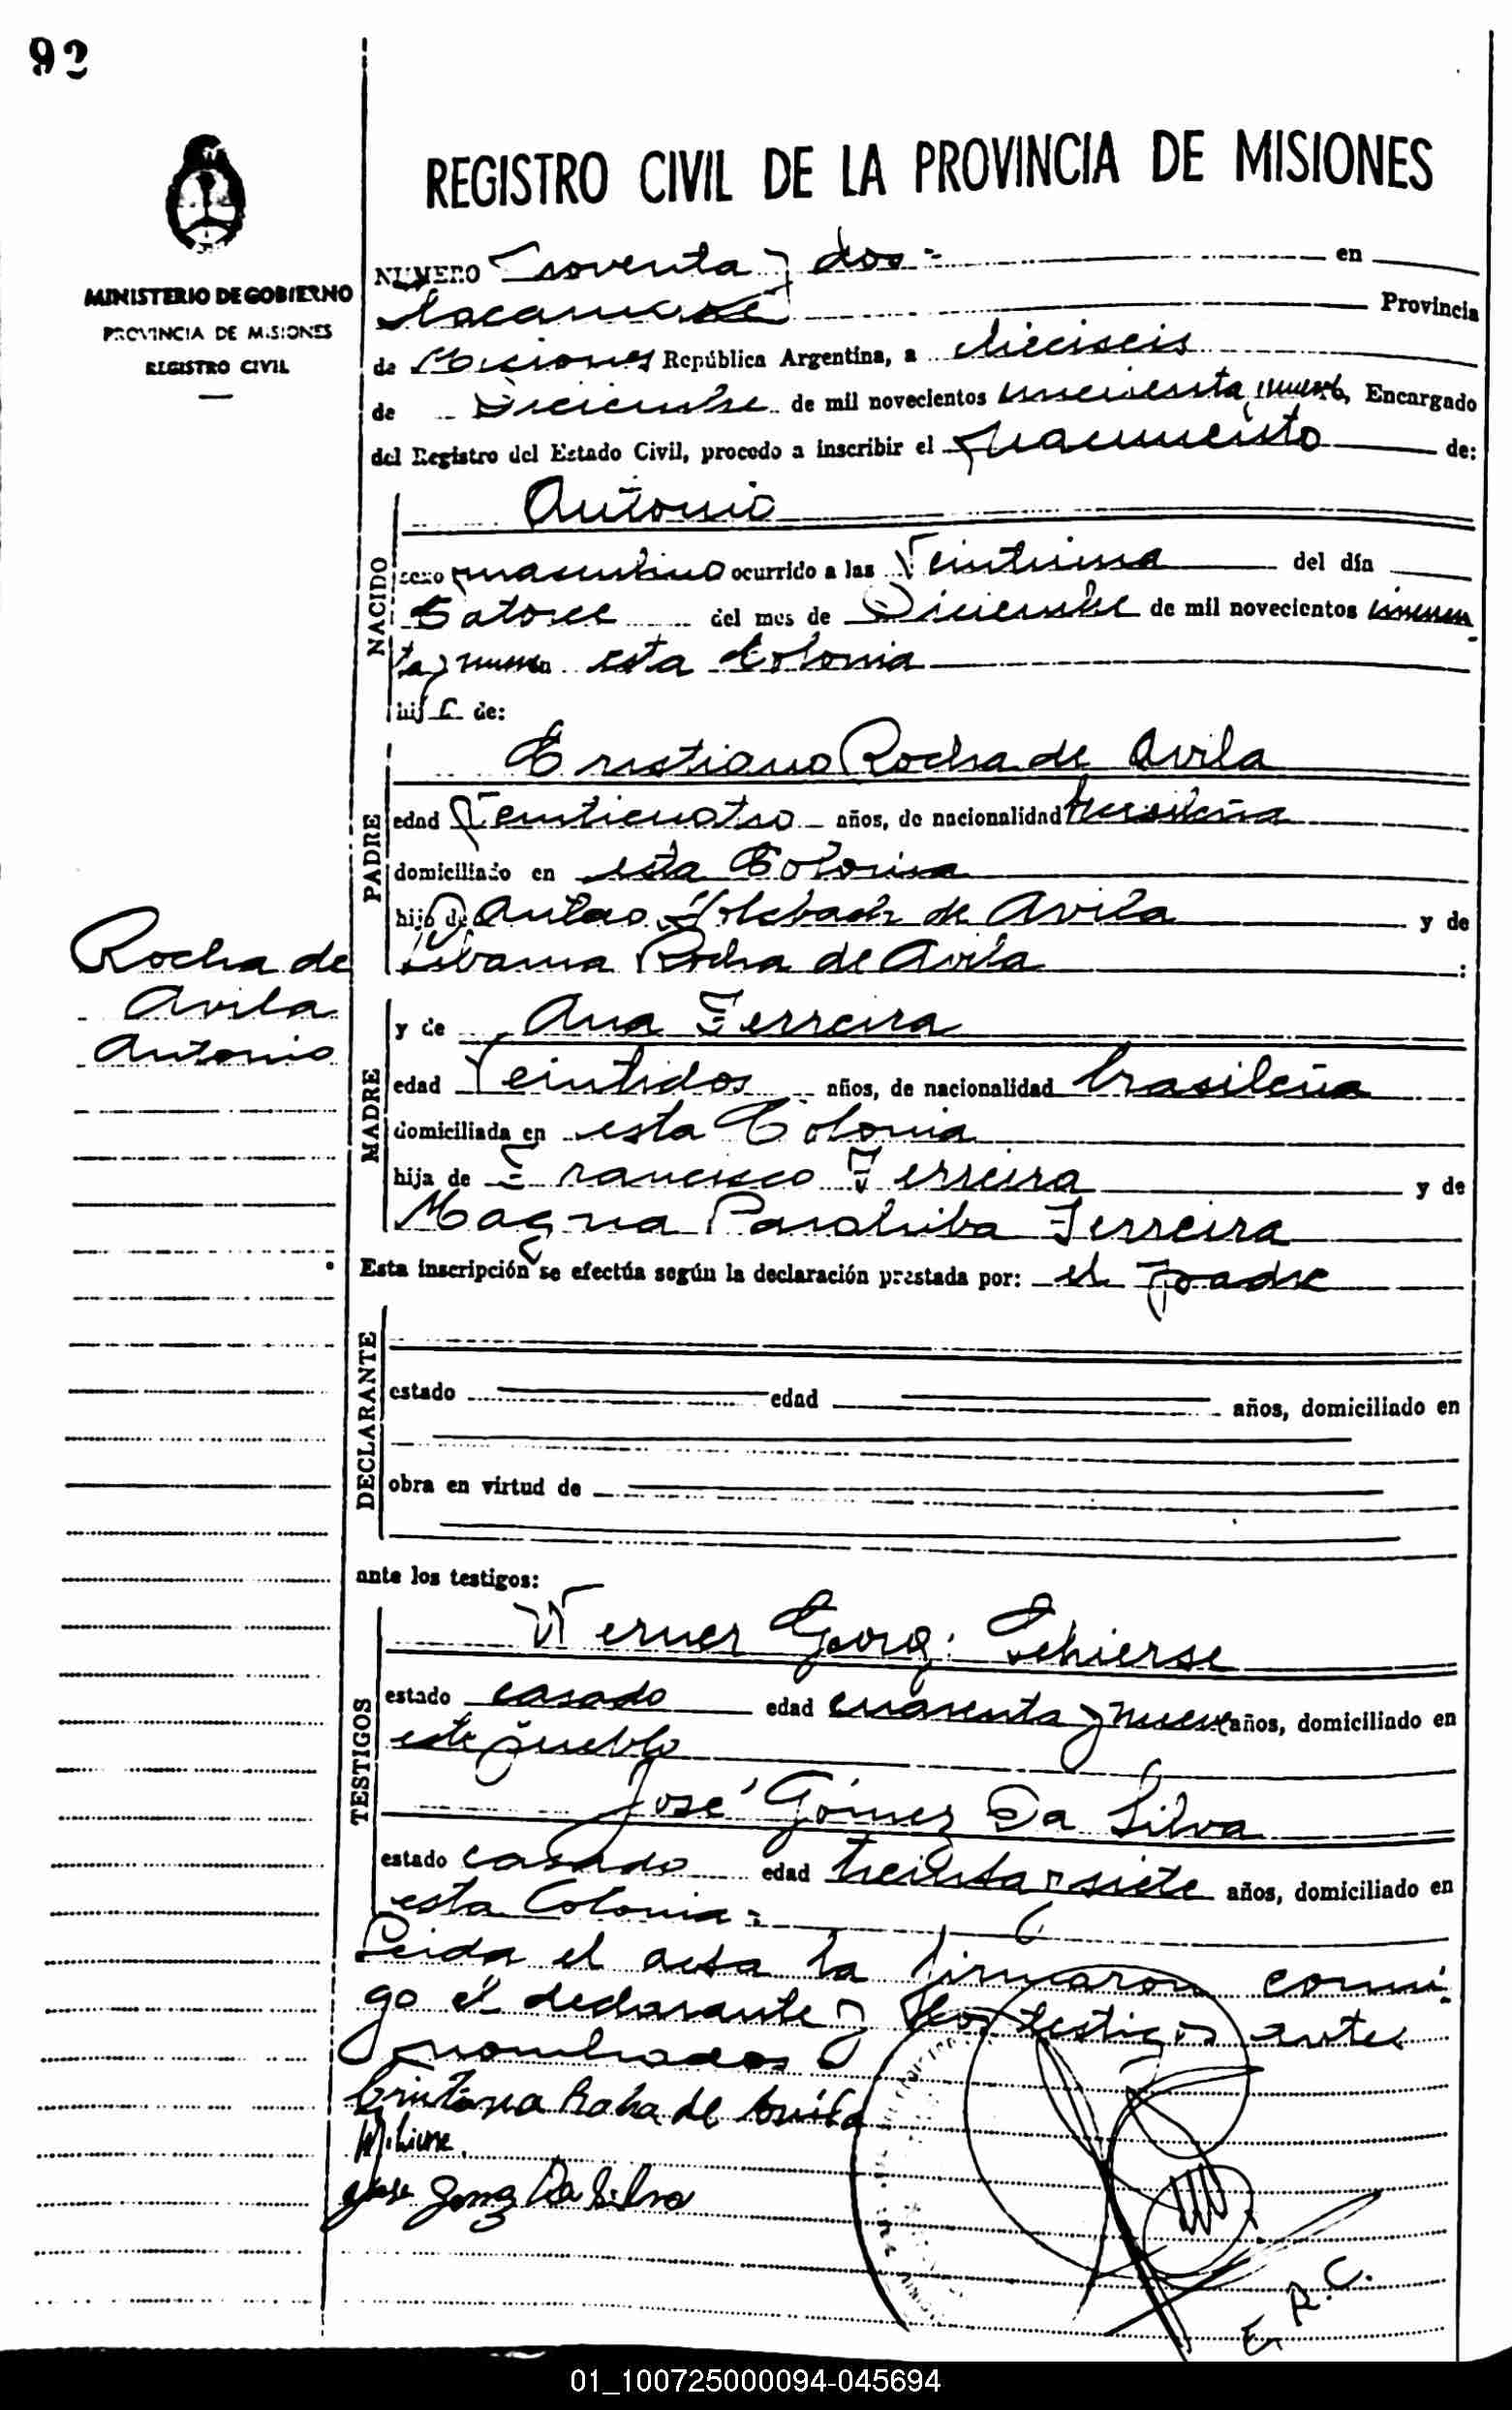 92
REGISTRO CIVIL DE LA PROVINCIA DE MISIONES
MINISTERIO DE GOBIERNO
PROVINCIA DE MISIONES
REGISTRO CIVIL
NUMERO Noventa y dos = en
Provincia
de Misiones República Argentina, a dieciseis
de Diciembre de mil novecientos cincuenta nueve, Encargado
del Registro del Estado Civil, procedo a inscribir el nacimiento de:
NACIDO
Antonio
sexo masculino ocurrido a las Veintiuna del día
Catorce del mes de Diciembre de mil novecientos cincuen
ta y nueve esta Colonia
hijo de:
PADRE
Cristiano Rocha de Avila
edad Veinticuatro años, de nacionalidad brasileña
domiciliado en esta Colonia
hijo de Antao de Avila y de
Rocha de Avila :
Rocha de
Avila
Antonio
MADRE
y de Ana Ferreira
edad Veintidos años, de nacionalidad brasileña
domiciliada en esta Colonia
hija de Francisco Ferreira y de
Magna Ferreira
Esta inscripción se efectúa según la declaración prestada por: el padre
DECLARANTE
estado edad años, domiciliado en
obra en virtud de
ante los testigos:
TESTIGOS
Werner Georg. Schierse
estado casado edad cuarenta y nueve años, domiciliado en
este pueblo
José Gómez Da Silva
estado casado edad treinta y siete años, domiciliado en
esta Colonia =
Leida el acta la firmaron conmi
go el declarante y los testigos antes
nombrados
Rocha de Avila
Jose Gomez Da Silva
E. R. C.
01_100725000094-045694